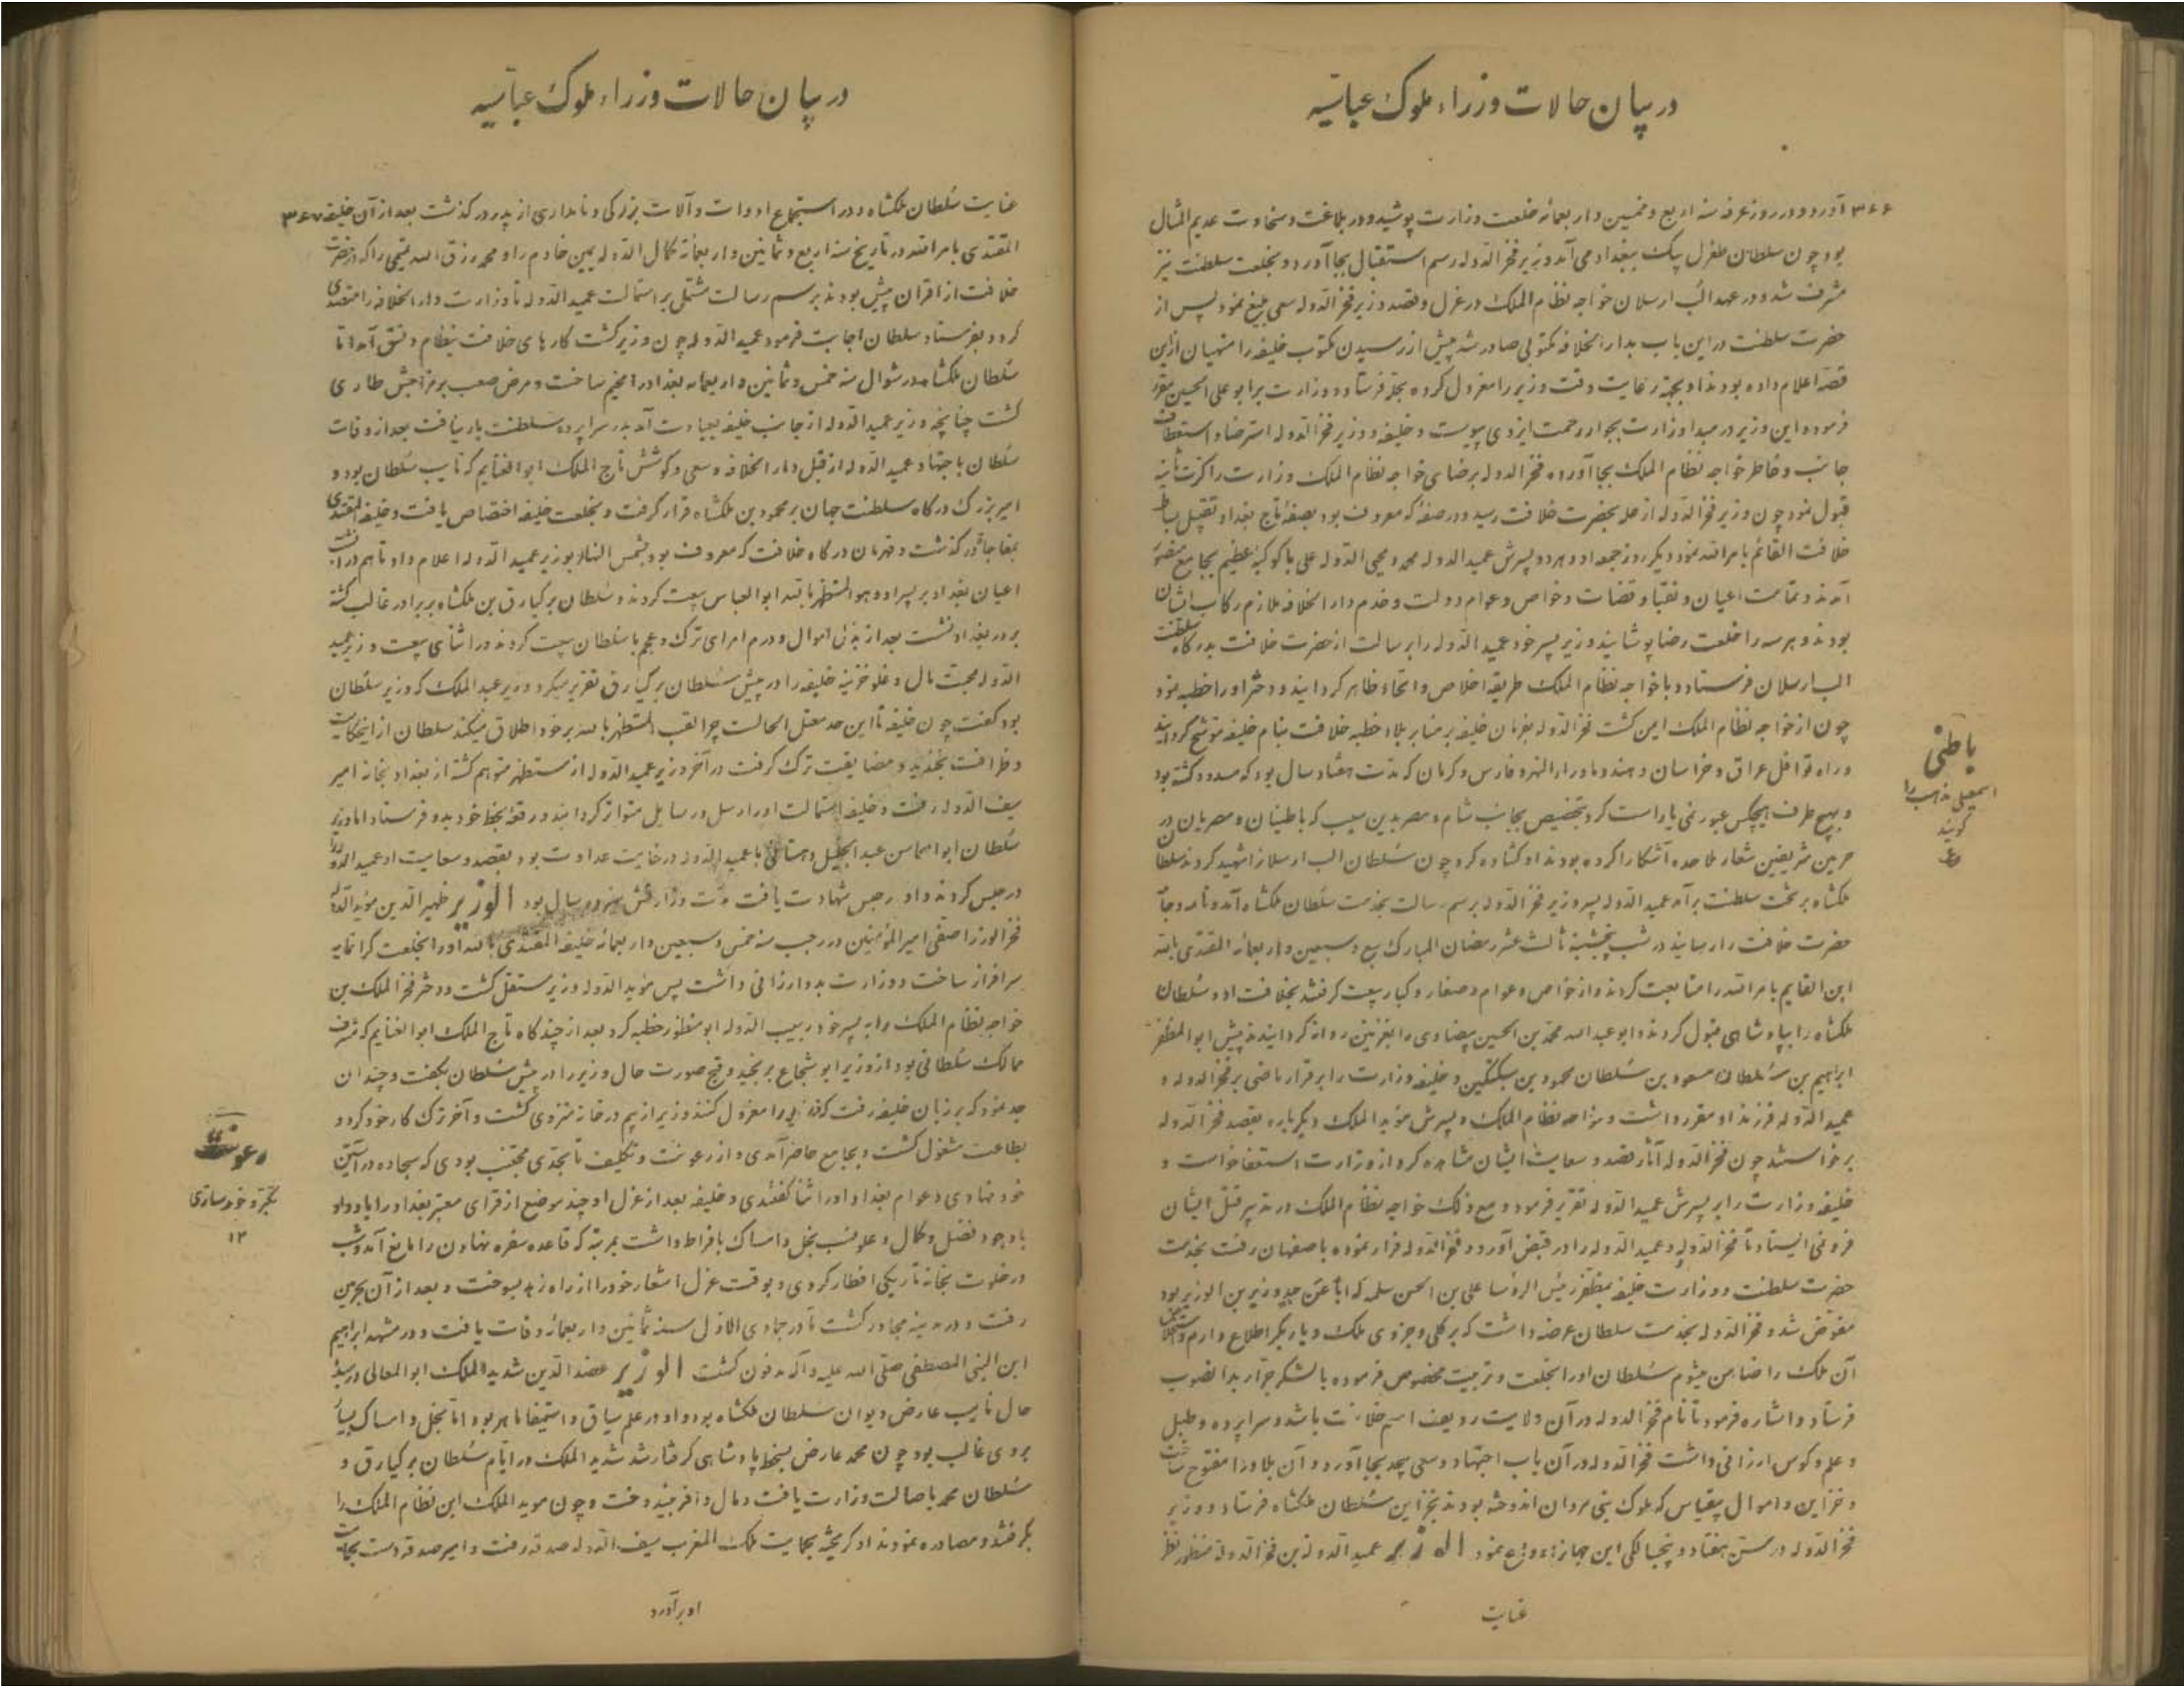 در بیان حالات وزراء ملوک عباسیه
۳۶۶ آورد و در روز عرفه سنه اربع و خمسین و اربعمائه خلعت وزارت پوشید و در بلاغت و سخاوت عدیم المثال
بود چون سلطان طغرل بیک ببغداد می آمد وزیر فخر الدوله رسم استقبال بجا آورد و بخلعت سلطنت نیز
مشرف شد و در عهد الب ارسلان خواجه نظام الملک در عزل و قصد وزیر فخر الدوله سعی بلیغ نمود پس از
حضرت سلطنت در این باب بدار الخلافه مکتوبی صادر شد پیش از رسیدن مکتوب خلیفه را منهیان ازین
قصه اعلام داده بودند او بجهة رعایت وقت وزیر را معزول کرده بحله فرستاد و وزارت بر ابو علی الحسین مقرر
فرموده این وزیر در مبدا وزارت بجوار رحمت ایزدی پیوست و خلیفه و وزیر فخر الدوله استرضا و استعطاف
جانب و خاطر خواجه نظام الملک بجا آورده فخر الدوله برضای خواجه نظام الملک وزارت را کرت ثانیه
قبول نمود چون وزیر فخر الدوله از حله بحضرت خلافت رسید و در صفه که معروف بود بصفه تاج بغداد تقبیل بساط
خلافت القائم بامر الله نمود دیگر روز جمعه او و هر دو پسرش عمید الدوله محمد و محیی الدوله علی با کوکبه عظیم بجامع منصور
آمدند و تمامت اعیان و نقبا و قضات و خواص و عوام دولت و خدم دار الخلافه ملازم رکاب ایشان
بودند و هر سه را خلعت رضا پوشانید وزیر پسر خود عمید الدوله را برسالت از حضرت خلافت بدرکاه سلطنت
الب ارسلان فرستاد و با خواجه نظام الملک طریقه اخلاص و اتحاد ظاهر کردانید و دختر او را خطبه نمود
چون از خواجه نظام الملک ایمن کشت فخر الدوله بفرمان خلیفه بر منابر بلاد خطبه خلافت بنام خلیفه موشح کردانید
و راه قوافل عراق و خراسان و هند و ماوراء النهر و فارس و کرمان که مدت هفتاد سال بود که مسدود کشته بود
و بهیچ طرف هیچکس عبور نمی یارست کرد بتخصیص بجانب شام و مصر بدین سبب که باطنیان و مصریان در
حرمین شریفین شعار ملاحده آشکارا کرده بودند او کشاده کرد چون سلطان الب ارسلانرا شهید کردند سلطان
ملکشاه بر تخت سلطنت برآمد عمید الدوله پسر وزیر فخر الدوله برسم رسالت بخدمت سلطان ملکشاه آمد
حضرت خلافت را رسانید در شب پنجشنبه ثالث عشر رمضان المبارک سبع و سبعین و اربعمائه المقتدی بالله
ابن القایم بامر الله را متابعت کردند و از خواص و عوام و صغار و کبار بیعت کرفتند بخلافت او و سلطان
ملکشاه را بپادشاهی قبول کردند و ابو عبد الله محمد بن الحسین بیضاوی را بغزنین روانه کردانیدند پیش ابو المظفر
ابراهیم بن سلطان مسعود بن سلطان محمود بن سبکتکین و خلیفه وزارت را بر قرار ماضی بر فخر الدوله و
عمید الدوله فرزند او مقرر داشت و خواجه نظام الملک و پسرش موید الملک دیکرباره بقصد فخر الدوله
برخواستند چون فخر الدوله آثار قصد و سعایت ایشان مشاهده کرد از وزارت استعفا خواست و
خلیفه وزارت را بر پسرش عمید الدوله تقریر فرمود و مع ذلک خواجه نظام الملک در تدبیر قتل ایشان
فرونمی ایستاد تا فخر الدوله و عمید الدوله را در قبض آورد و فخر الدوله فرار نموده باصفهان رفت بخدمت
حضرت سلطنت و وزارت خلیفه بمظفر رئیس الرؤسا علی بن الحسن سلمه که اباً عن جد وزیر بن الوزیر بود
مفوض شد و فخر الدوله بخدمت سلطان عرضه داشت که بر کلی و جزوی ملک دیار بکر اطلاع دارم و استخلاص
آن ملک را ضامن میشوم سلطان او را بخلعت و تربیت مخصوص فرموده با لشکر جرار بدانصوب
فرستاد و اشاره فرمود تا نام فخر الدوله در آن ولایت ردیف اسم خلافت باشد و سراپرده و طبل
و علم و کوس ارزانی داشت فخر الدوله در آن باب اجتهاد و سعی بیحد بجا آورد و آن بلاد را مفتوح ساخت
و خزاین و اموال بیقیاس که ملوک بنی مروان اندوخته بودند بخزاین سلطان ملکشاه فرستاد و وزیر
فخر الدوله در سن هفتاد و پنجسالکی این جهانرا وداع نمود الوزیر عمید الدوله بن فخر الدوله منظور نظر
باطنی
اسمعیلی مذهب را
کویند
عنایت
در بیان حالات وزراء ملوک عباسیه
عنایت سلطان ملکشاه و در استجماع ادوات و آلات بزرکی و نامداری از پدر در کذشت بعد از آن خلیفه ۳۶۷
المقتدی بامر الله در تاریخ سنه اربع و ثمانین و اربعمائه کمال الدوله یمین خادم را و محمد رزق الله تمیمی را که در حضرت
خلافت از اقران بیش بودند برسم رسالت مشتمل بر استمالت عمید الدوله تا وزارت دار الخلافه را متصدی
کردد بفرستاد سلطان اجابت فرمود عمید الدوله چون وزیر کشت کارهای خلافت بنظام و نسق آمد تا
سلطان ملکشاه در شوال سنه خمس و ثمانین و اربعمائه بغداد را مخیم ساخت و مرض صعب بر مزاجش طاری
کشت چنانچه وزیر عمید الدوله از جانب خلیفه بعیادت آمد بدر سراپرده سلطنت بار نیافت بعد از وفات
سلطان باجتهاد عمید الدوله از قبل دار الخلافه و سعی و کوشش تاج الملک ابو الغنایم که نایب سلطان بود و
امیر بزرک درکاه سلطنت جهان بر محمود بن ملکشاه قرار کرفت و بخلعت خلیفه اختصاص یافت و خلیفه المقتدی
بمفاجاة در کذشت و قهرمان درکاه خلافت که معروف بود بشمس النهار بوزیر عمید الدوله اعلام داد تا هم در آن
اعیان بغداد بر پسر او و هو المستظهر بالله ابو العباس بیعت کردند و سلطان برکیارق بن ملکشاه بر برادر غالب کشته
بر در بغداد نشست بعد از بذل اموال و درم امرای ترک و عجم با سلطان بیعت کردند در اثنای بیعت وزیر عمید
الدوله محبت مال و غلو خزینه خلیفه را در پیش سلطان برکیارق تقریر میکرد وزیر عبد الملک که وزیر سلطان
بود کفت چون خلیفه تا این حد مقتل الحالست چرا لقب المستظهر بالله بر خود اطلاق میکند سلطان از اینحکایت
و ظرافت بخندید و مضایقت ترک کرفت در آخر وزیر عمید الدوله از مستظهر متوهم کشته از بغداد بخانه امیر
سیف الدوله رفت و خلیفه استمالت او را رسل و رسایل متواتر کردانید و رقعه بخط خود بدو فرستاد اما وزیر
سلطان ابو المحاسن عبد الجلیل دهستانی با عمید الدوله در غایت عداوت بود بقصد و سعایت او عمید الدوله را
در حبس کردند و او در حبس شهادت یافت مدت وزارتش نوزده سال بود الوزیر ظهیر الدین موید الدوله
فخر الوزرا صفی امیر المؤمنین در رجب سنه خمس و سبعین و اربعمائه خلیفه المقتدی بالله او را بخلعت کرانمایه
سرافراز ساخت و وزارت بدو ارزانی داشت پس موید الدوله وزیر مستقل کشت و دختر فخر الملک بن
خواجه نظام الملک را به پسر خود ربیب الدوله ابو منظور خطبه کرد بعد از چند کاه تاج الملک ابو الغنایم که مشرف
ممالک سلطانی بود از وزیر ابو شجاع برنجید و قبح صورت حال وزیر را در پیش سلطان بکفت و چندان
جد نمود که بر زبان خلیفه رفت که وزیر را معزول کنند وزیر از بیم در خانه منزوی کشت و آخر ترک کار خود کرد و
بطاعت مشغول کشت و بجامع حاضر آمدی و از رعونت و تکلیف تا بحدی مجتنب بودی که سجاده در آستین
خود نهادی و عوام بغداد او را ثنا کفتندی و خلیفه بعد از عزل او چند موضع از قرای معتبر بغداد را باو داد
باوجود فضل و کمال و علو نسب بخل و امساک بافراط داشت بمرتبه که قاعده سفره نهادن را مانع آمد و شب
در خلوت بخانه تاریکی افطار کردی و بوقت عزل اشعار خود را از راه زهد بسوخت و بعد از آن بحرمین
رفت و در مدینه مجاور کشت تا در جمادی الاول سنه ثمانین و اربعمائه وفات یافت و در مشهد ابراهیم
ابن النبی المصطفی صلی الله علیه و آله مدفون کشت الوزیر عضد الدین شدید الملک ابو المعالی در مبدأ
حال نایب عارض دیوان سلطان ملکشاه بود و او در علم سیاق و استیفا ماهر بود اما بخل و امساک بسیار
بر وی غالب بود چون محمد عارض بسخط پادشاهی کرفتار شد شدید الملک در ایام سلطان برکیارق و
سلطان محمد باصالت وزارت یافت و مال وافر بیندوخت و چون موید الملک ابن نظام الملک را
بکرفتند و مصادره نمودند او کریخته بحمایت ملک المغرب سیف الدوله صدقه رفت و امیر صدقه دست بحمایت
رعونت
تکبر و خودسازی
۱۲
او برآورد